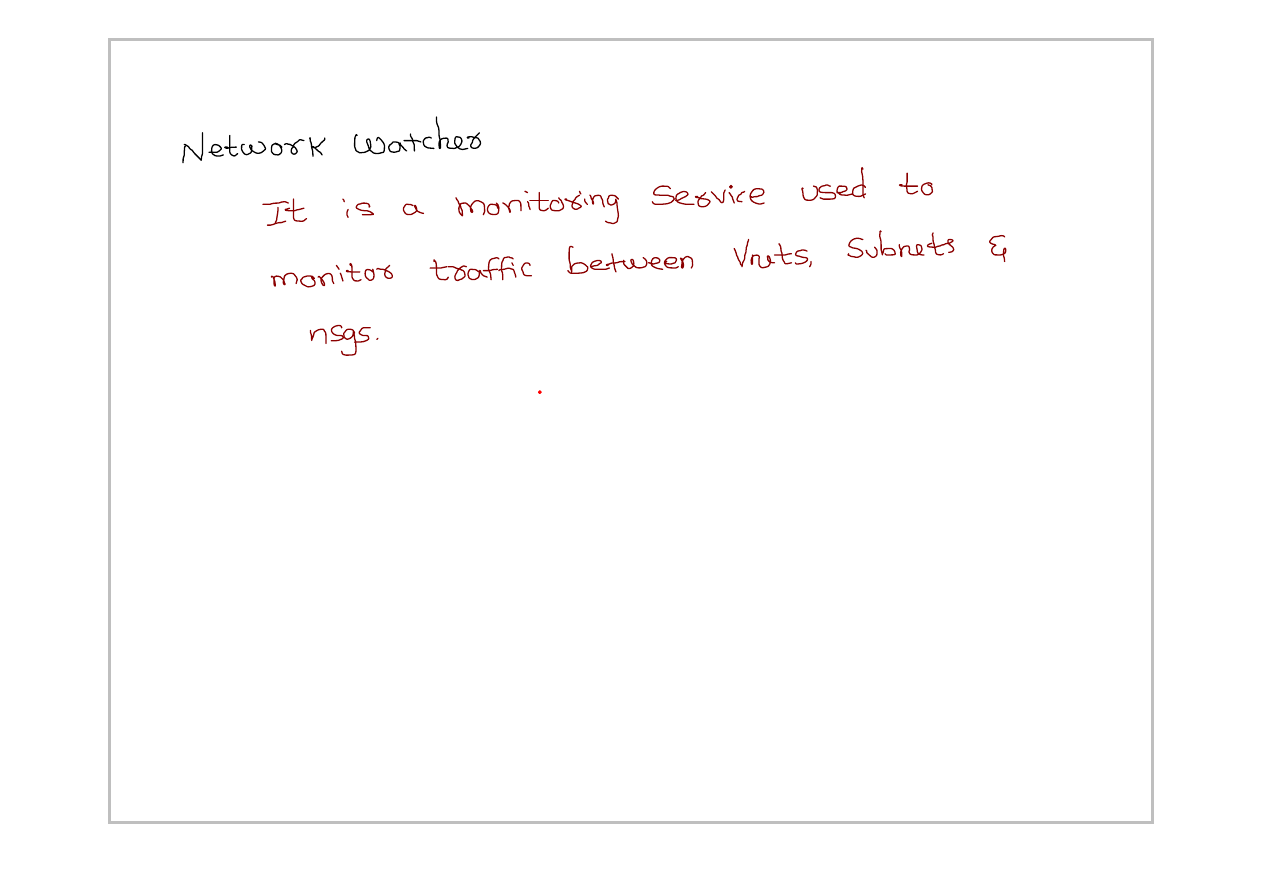 Network Watcher
It is a monitoring Service used to
monitor traffic between Vnets, Subnets &
nsgs.